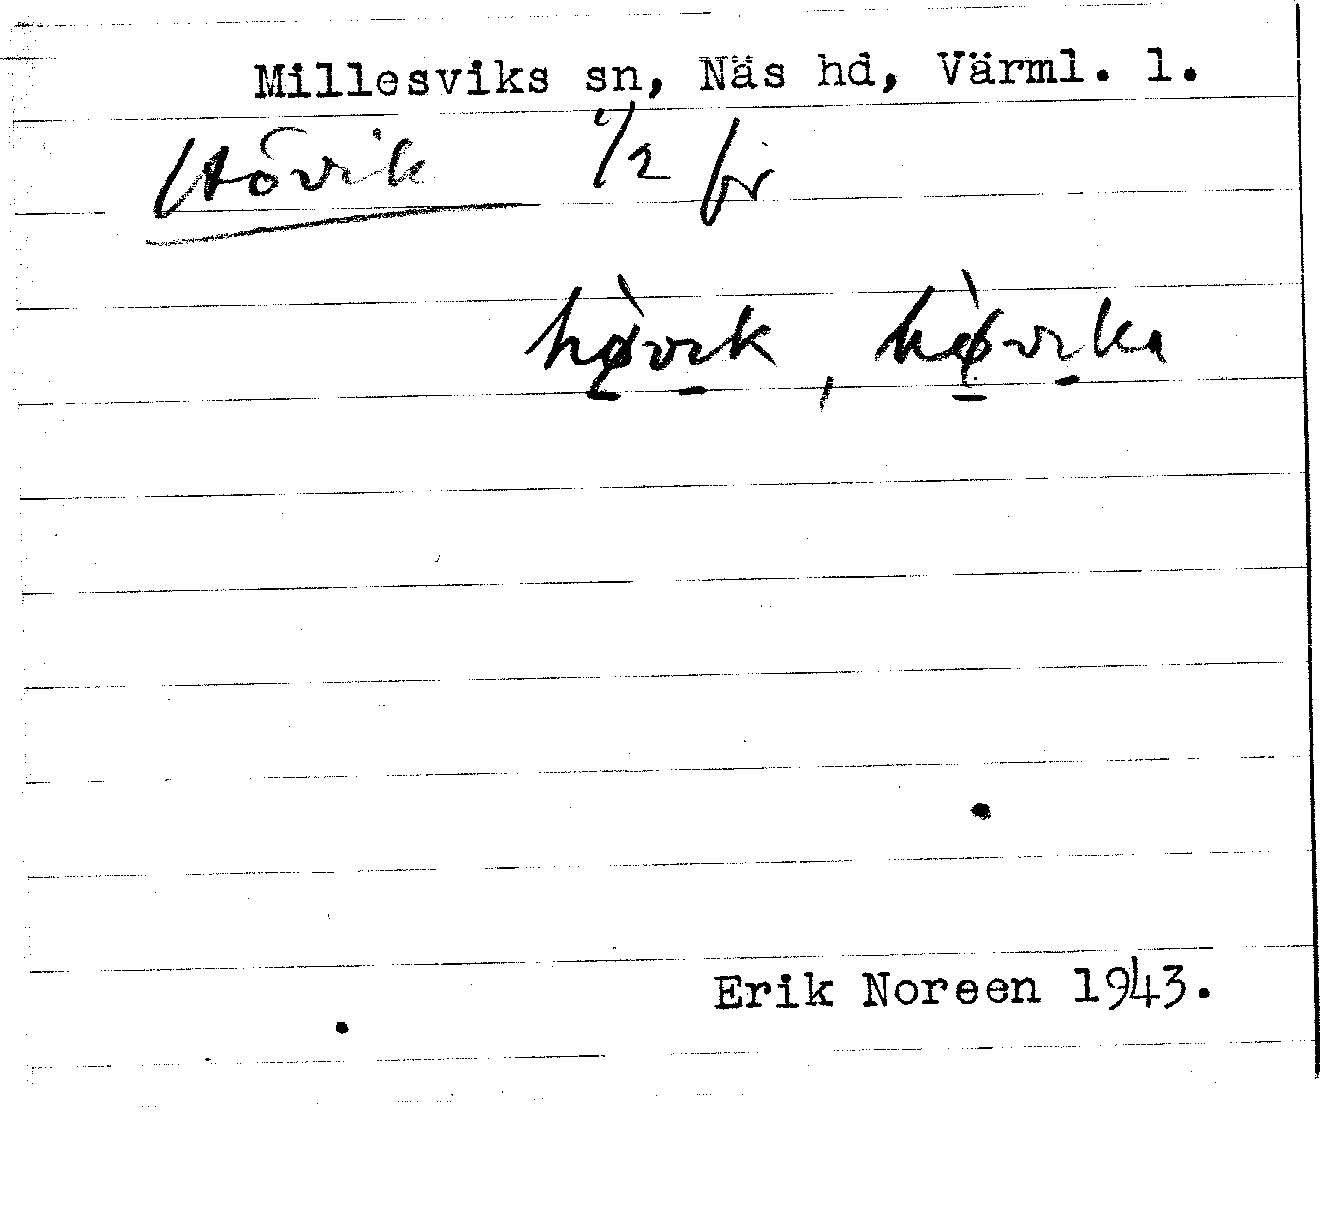 Millesviks sn, Näs hd, Värml. l.
Hövik 1/2 fr
hø̀vik, hø̀vika
Erik Noreen 1943.